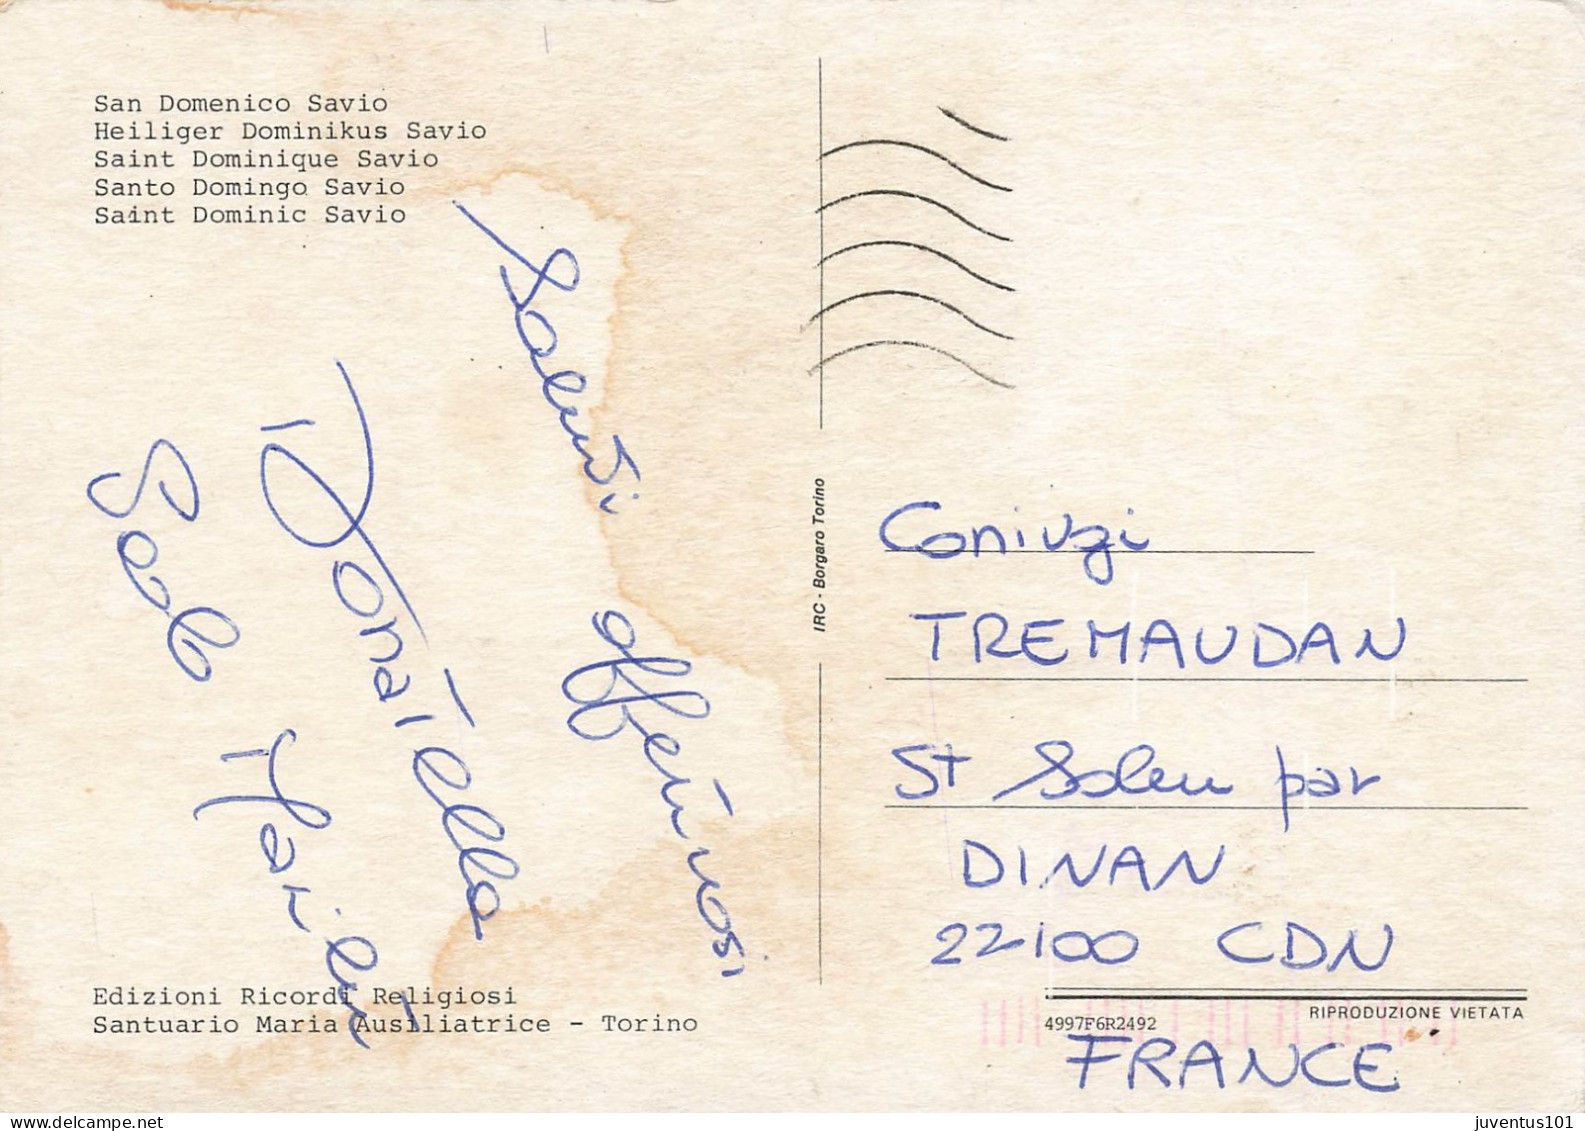 San Domenico Savio
Heiliger Dominikus Savio
Saint Dominique Savio
Santo Domingo Savio
Saint Dominic Savio
Saluti affettuosi
Donatella
IRC - Borgaro Torino
Coniugi
TREMAUDAN
St Solen par
DINAN
22100 CDN
FRANCE
Edizioni Ricordi Religiosi
Santuario Maria Ausiliatrice - Torino
4997F6R2492
RIPRODUZIONE VIETATA
juventus101